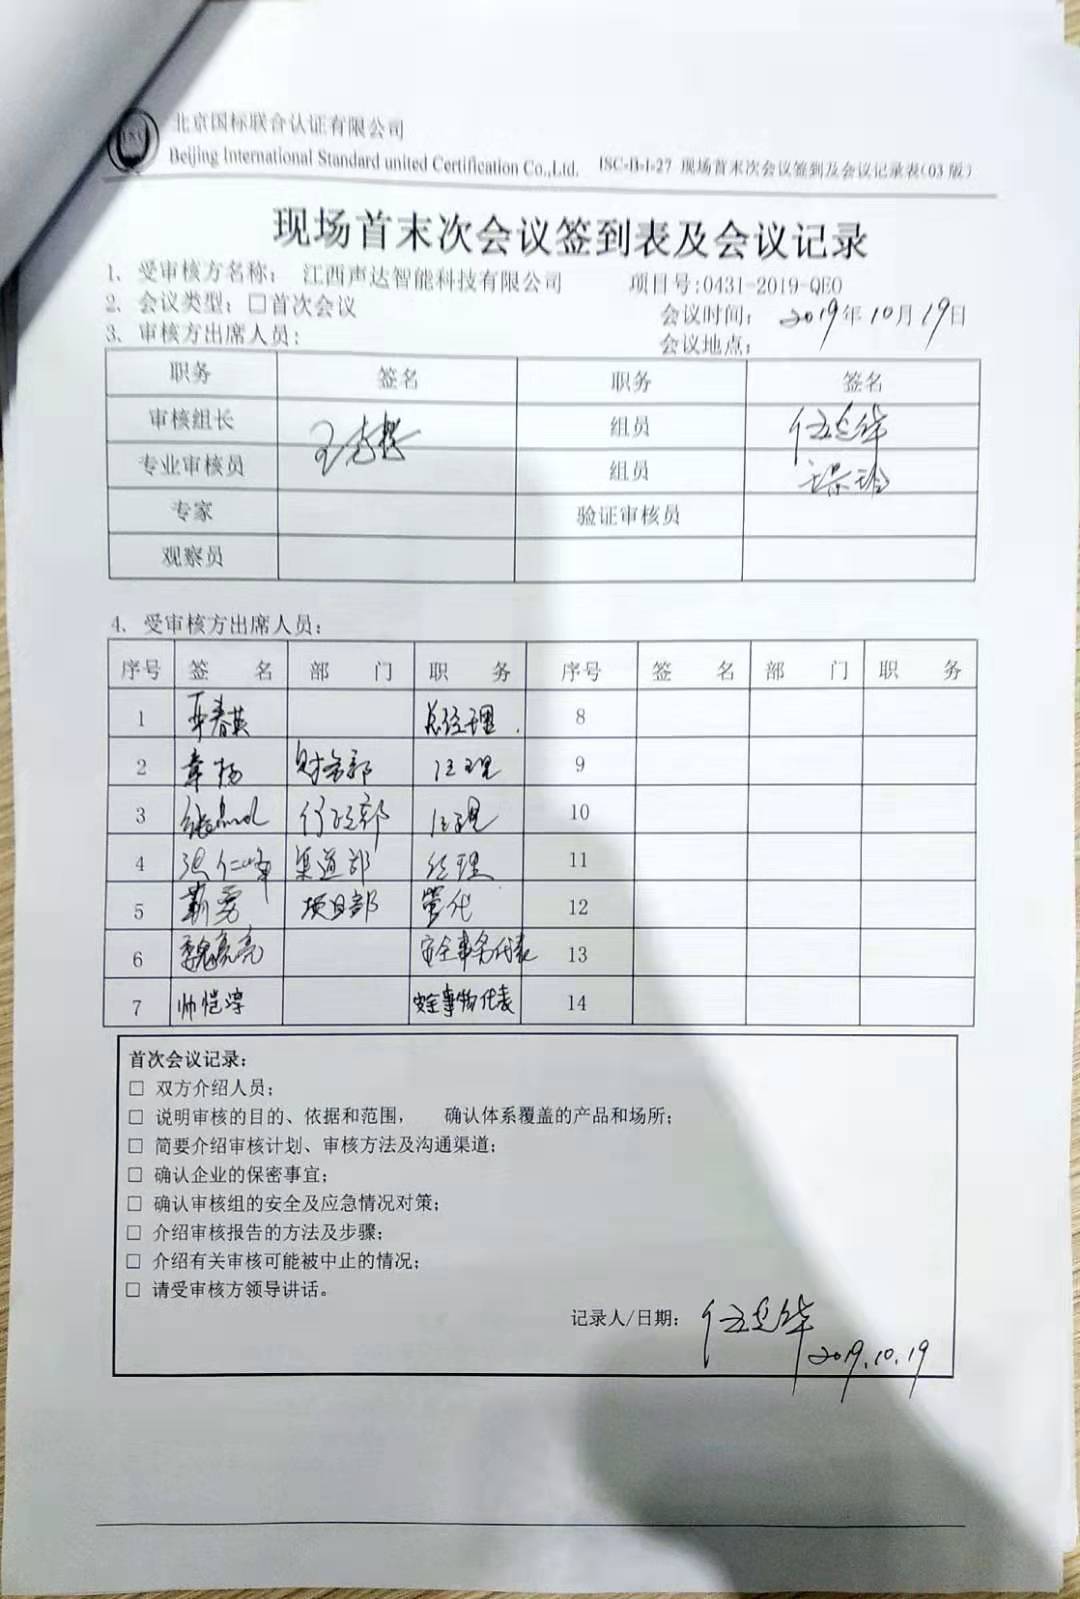 ISC
北京国标联合认证有限公司
Beijing International Standard united Certification Co.,Ltd. ISC-B-I-27 现场首末次会议签到及会议记录表(03 版)
现场首末次会议签到表及会议记录
1、受审核方名称： 江西声达智能科技有限公司 项目号:0431-2019-QEO
2、会议类型：□首次会议 会议时间： 2019年10月19日
3、审核方出席人员： 会议地点：
职务 签名 职务 签名
审核组长 组员
专业审核员 组员
专家 验证审核员
观察员
4、受审核方出席人员：
序号 签 名 部 门 职 务 序号 签 名 部 门 职 务
1 总经理 8
2 章杨 财务部 经理 9
3 行政部 经理 10
4 张仁峰 渠道部 经理 11
5 靳勇 项目部 管代 12
6 魏亮亮 安全事务代表 13
7 帅恺淳 安全事物代表 14
首次会议记录：
□ 双方介绍人员；
□ 说明审核的目的、依据和范围， 确认体系覆盖的产品和场所；
□ 简要介绍审核计划、审核方法及沟通渠道；
□ 确认企业的保密事宜；
□ 确认审核组的安全及应急情况对策；
□ 介绍审核报告的方法及步骤；
□ 介绍有关审核可能被中止的情况；
□ 请受审核方领导讲话。
记录人/日期：
2019.10.19